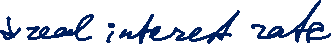 ↓real interest rate